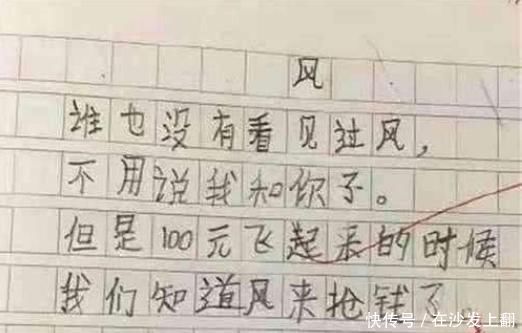 风
谁也没有看见过风，
不用说我和你了。
但是100元飞起来的时候
我们知道风来抢钱了。
快传号/在沙发上翻